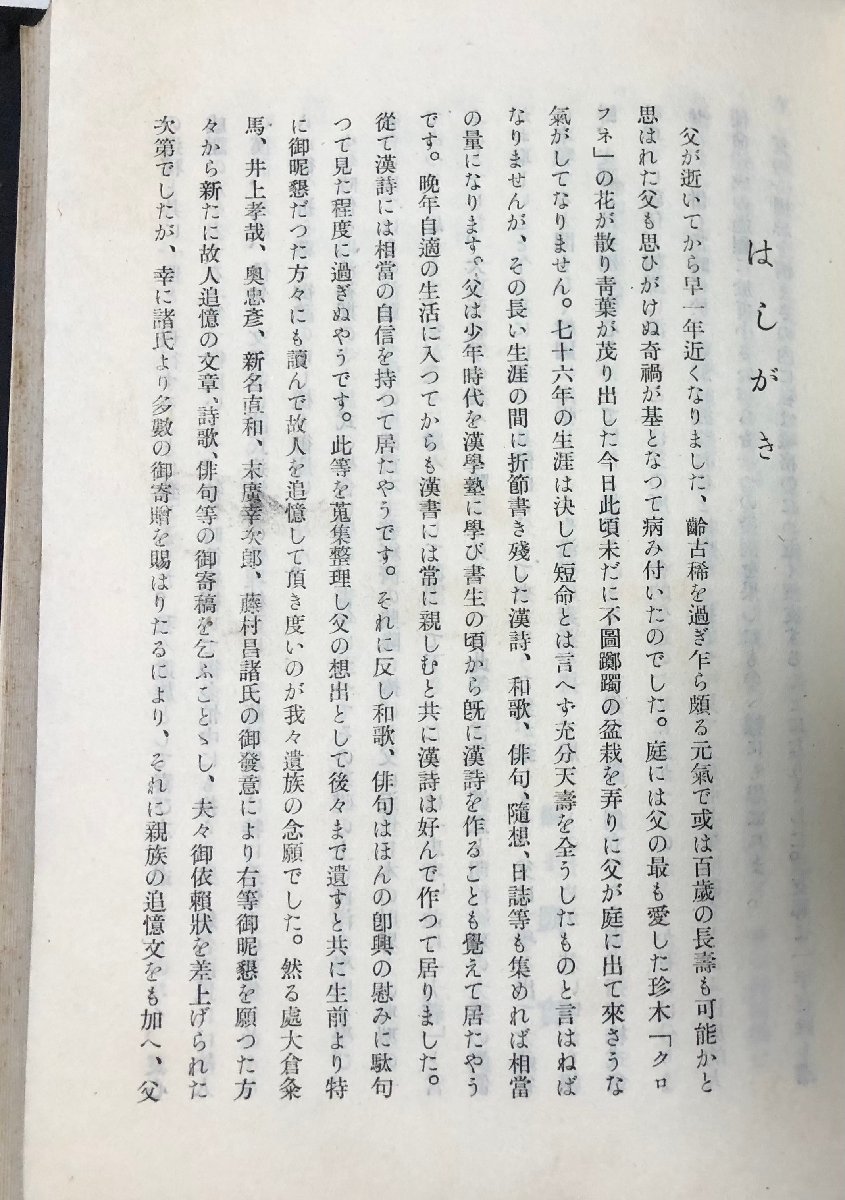 はしがき
父が逝いてから早一年近くなりました、齡古稀を過ぎ乍ら頗る元氣で或は百歲の長壽も可能かと
思はれた父も思ひがけぬ奇禍が基となつて病み付いたのでした。庭には父の最も愛した珍木「クロ
フネ」の花が散り靑葉が茂り出した今日此頃未だに不圖躑躅の盆栽を弄りに父が庭に出て來さうな
氣がしてなりません。七十六年の生涯は決して短命とは言へず充分天壽を全うしたものと言はねば
なりませんが、その長い生涯の間に折節書き殘した漢詩、和歌、俳句、隨想、日誌等も集めれば相當
の量になります。父は少年時代を漢學塾に學び書生の頃から旣に漢詩を作ることも覺えて居たやう
です。晩年自適の生活に入つてからも漢書には常に親しむと共に漢詩は好んで作つて居りました。
從て漢詩には相當の自信を持つて居たやうです。それに反し和歌、俳句はほんの卽興の慰みに駄句
つて見た程度に過ぎぬやうです。此等を蒐集整理し父の想出として後々まで遺すと共に生前より特
に御昵懇だつた方々にも讀んで故人を追憶して頂き度いのが我々遺族の念願でした。然る處大倉粂
馬、井上孝哉、奧忠彥、新名直和、末廣幸次郎、藤村昌諸氏の御發意により右等御昵懇を願つた方
々から新たに故人追憶の文章、詩歌、俳句等の御寄稿を乞ふことゝし、夫々御依賴狀を差上げられた
次第でしたが、幸に諸氏より多數の御寄贈を賜はりたるにより、それに親族の追憶文をも加へ、父